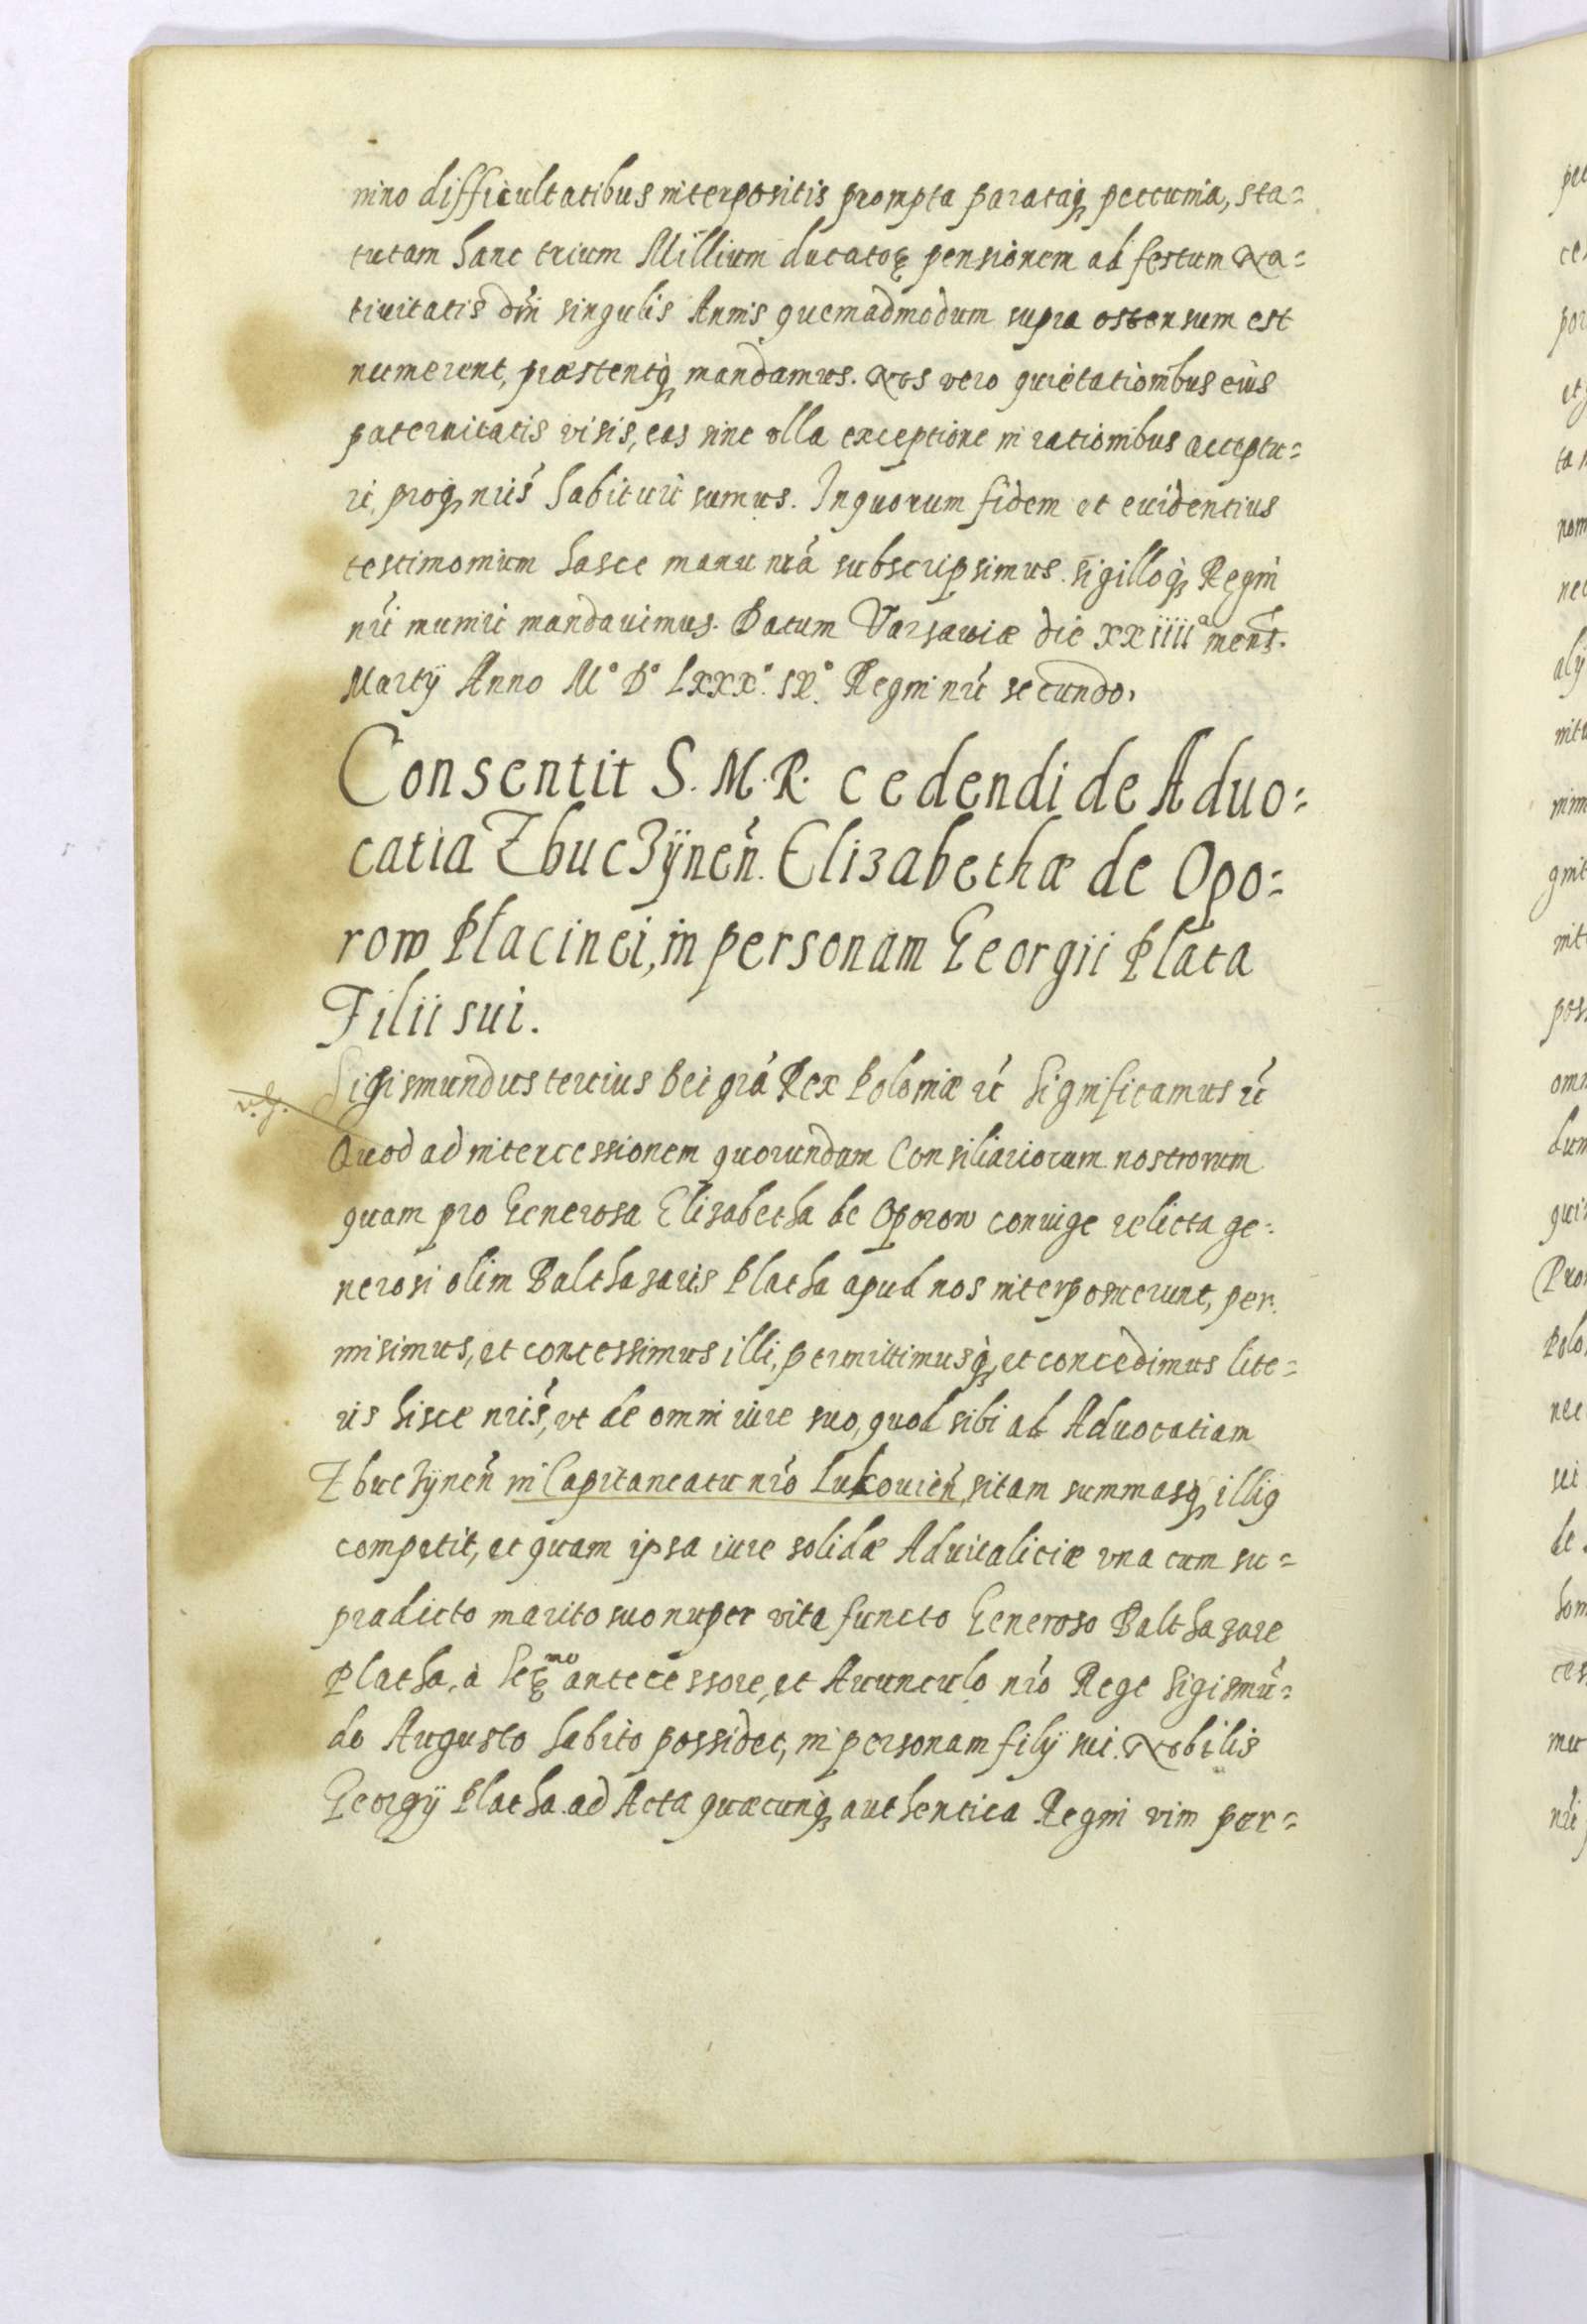 nino difficultatibus interpositis prompta parataq₃ peccunia, sta=
tutam hanc trium Millium ducatoꝝ pensionem ad festum Na=
tiuitatis dñi singulis Annis quemadmodum supra ostensum est
numerent, præstentq₃ mandamus. Nos vero quietationibus eius
paternitatis visis, eas sine vlla exceptione in rationibus acceptu=
ri, proq₃ nr̃is habituri sumus. In quorum fidem et euidentius
testimonium hasce manu nr̃a subscripsimus. sigilloq₃ Regni
nr̃i muniri mandauimus. Datum Varsawiæ die xxiiiiᵃ mens̃.
Martÿ Anno M° D° Lxxx° IX° Regni nr̃i secundo,
Consentit S. M. R. cedendi de Aduo=
catia Zbuczÿneñ. Elizabethæ de Opo=
row Płacinei, in personam Georgii Płata
Filii sui.
v. s.
Sigismundus tertius Dei gr̃a Rex Poloniæ rc̃ Significamus rc̃
Quod ad intercessionem quorundam Consiliariorum nostrorum
quam pro Generosa Elizabetha de Oporow coniuge relicta ge=
nerosi olim Balthazaris Platha apud nos interposuerunt, per=
misimus, et concessimus illi, permittimusq₃, et concedimus lite=
ris hisce nr̃is, vt de omni iure suo, quod sibi ad Aduocatiam
Zbuczÿneñ in Capitaneatu nr̃o Lukouieñ, sitam summasq₃ illiq₃
competit, et quam ipsa iure solidæ Aduitaliciæ vna cum su=
pradicto marito suo nuper vita functo Generoso Balthazare
Platha, à Serᵐᵒ antecessore, et Auunculo nr̃o Rege Sigismũ=
do Augusto habito possidet, in personam filÿ sui Nobilis
Georgÿ Platha ad Acta quæcunq₃ authentica Regni vim per=